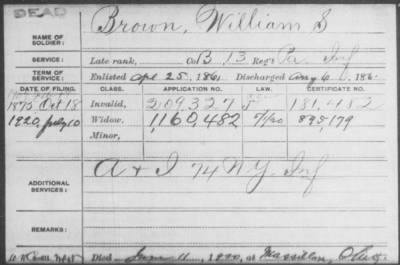 DEAD
Brown, William S
NAME OF SOLDIER:
SERVICE: Late rank, Co B, 13 Reg't Pa. Inf
TERM OF SERVICE: Enlisted Apl 25, 1861 Discharged Aug 6, 1861
DATE OF FILING. CLASS. APPLICATION NO. LAW. CERTIFICATE NO.
1875 Oct 18 Invalid, 209327 181,482
1920, July 10 Widow, 1,160,482 895,179
Minor,
ADDITIONAL SERVICES: A & I 74 N.Y. Inf
REMARKS:
Died June 11, 1920, at Massillon, Ohio.